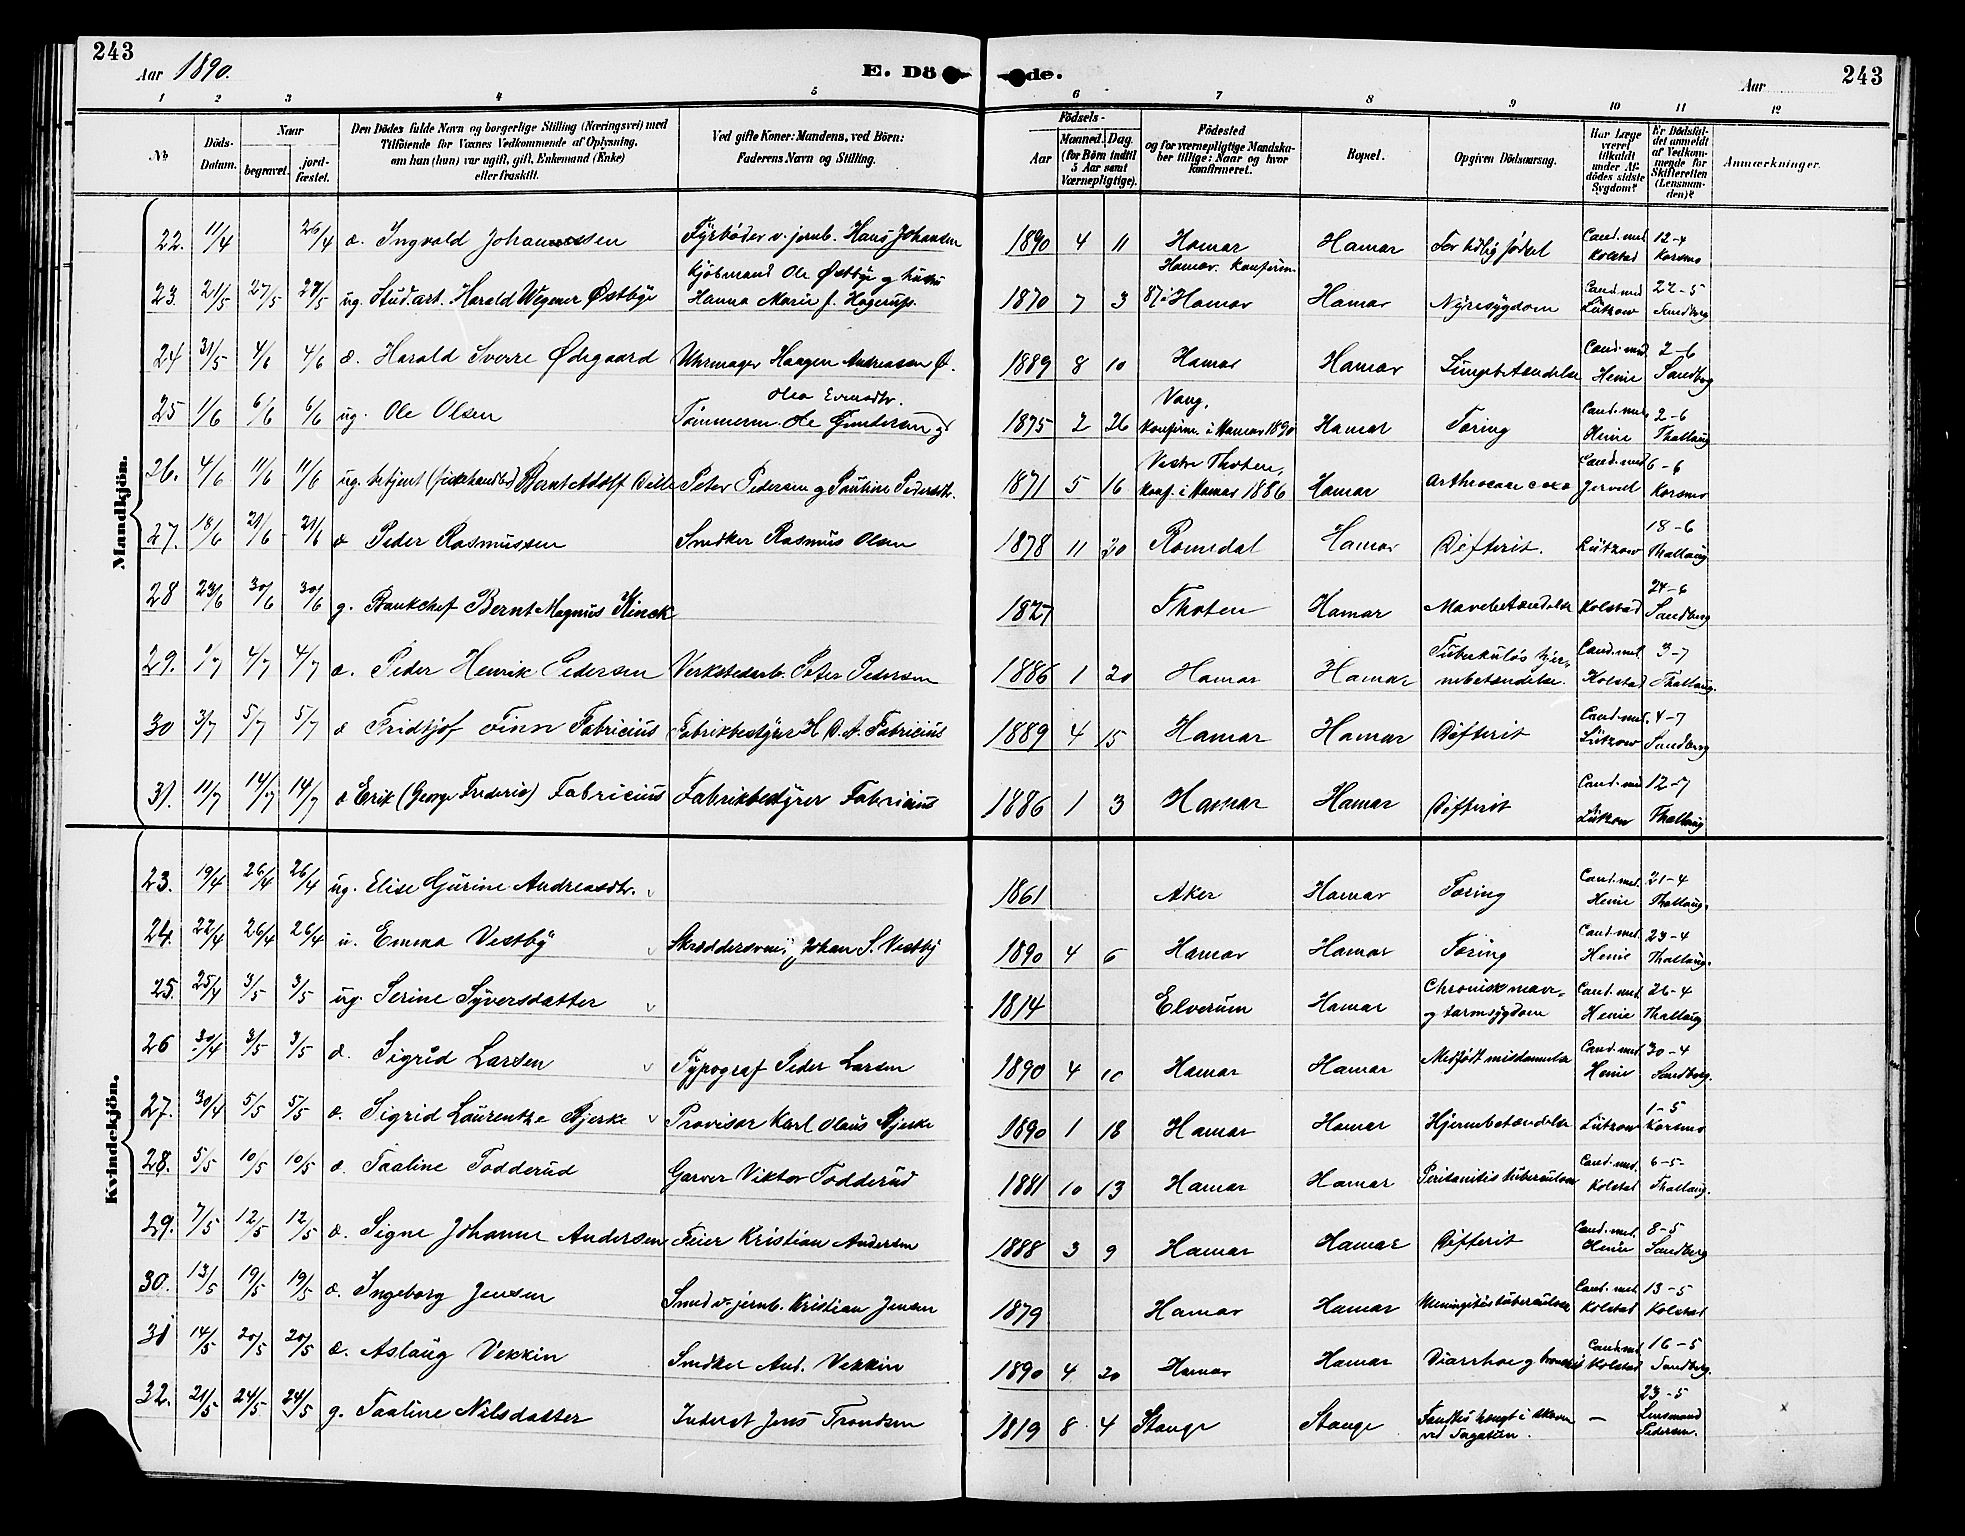 243
Aar 1890.
E. Dö de.
Aar
243
1 2 3 4 5 6 7 8 9 10 11 12
No
Döds-Datum.
Naar
begravet.
jord-fæstet.
Den Dödes fulde Navn og borgerlige Stilling (Næringsvei) med
Tilföiende for Voxnes Vedkommende af Oplysning,
om han (hun) var ugift, gift, Enkemand (Enke)
eller fraskilt.
Ved gifte Koner: Mandens, ved Börn:
Faderens Navn og Stilling.
Födsels-
Aar
Maaned. Dag.
(for Börn indtil
5 Aar samt
Værnepligtige).
Födested
og for værnepligtige Mandska-
ber tillige: Naar og hvor
konfirmeret.
Bopæl.
Opgiven Dödsaarsag.
Har Læge
været
tilkaldt
under Af-
dödes sidste
Sygdom?
Er Dödsfal-
det anmeldt
af Vedkom-
mende for
Skifteretten
(Lensman-
den)?
Anmærkninger.
Mandkjön.
22. 11/4 26/4 d. Ingvald Johannessen Fyrbøder v. jernb. Hans Johansen 1890 4 11 Hamar Hamar For tidlig født Cand. med Kolstad 12-4 Korsmo
23. 21/5 27/5 27/5 ug. Stud. art. Harald Wegener Østbye Kjøbmand Ole Østbye og Hustru Hanna Marie f. Hagerup. 1870 7 3 Hamar. Konfirm. 87 i Hamar Hamar Nyresygdom Cand. med Lützow 22-5 Sandberg
24 31/5 4/6 4/6 d. Harald Sverre Ødegaard Uhrmager Haagen Andreassen Ø. 1889 8 10 Hamar Hamar Lungebetændelse Cand. med. Heine 2-6 Sandberg
25 1/6 6/6 6/6 ug. Ole Olsen Tømmerm. Ole Gundersen og Olea Evensdtr. 1875 2 26 Vang, Konfirm. i Hamar 1890 Hamar Tæring Cand. med. Heine 2-6 Thallaug
26. 4/6 11/6 11/6 ug. betjent Bernt Adolf Peter Pedersen og Pauline Pedersdtr. 1871 5 16 Vestre Thoten, Konf. i Hamar 1886 Hamar Arthrocace coxæ Cand. med Jervel 6-6 Korsmo
27. 18/6 21/6 21/6 d Peder Rasmussen Snedker Rasmus Olsen 1878 11 20 Romedal Hamar Difterit. Lützow 18-6 Thallaug
28 23/6 30/6 30/6 g. Bankchef Bernt Magnus Kinck 1827 Thoten Hamar Mavebetændelse Kolstad 24-6 Sandberg
29. 1/7 4/7 4/7 d. Peder Henrik Pedersen Verkstedarb. Peter Pedersen 1886 1 20 Hamar Hamar Tuberkuløs hjernebetændelse. Cand. med. Kolstad 3-7 Thallaug.
30 3/7 5/7 5/7 d Fridtjof Finn Fabricius Fabrikbestyrer H. D. A. Fabricius 1889 4 15 Hamar Hamar Difterit Cand. med. Lützow 4-7 Sandberg
31. 11/7 14/7 14/7 d Erik (George Frederic) Fabricius Fabrikbestyrer Fabricius 1886 1 3 Hamar Hamar Difterit Cand. med Lützow 12-7 Thallaug
Kvindekjön.
23. 19/4 26/4 26/4 ug. Elise Gurine Andreasdtr. 1861 Aker Hamar Tæring Cand. med. Heine 21-4 Thallaug.
24. 22/4 26/4 26/4 u. Emma Vestby Skræddersv. Johan S. Vestby 1890 4 6 Hamar Hamar Tæring Cand. med. Heine 23-4 Thallaug.
25. 25/4 3/5 3/5 ug. Serine Syversdatter 1814 Elverum Hamar Chronisk mave- og tarmsygdom Cand. med. Heine 26-4 Thallaug
26 30/4 3/5 3/5 d. Sigrid Larsen Typograf Peder Larsen 1890 4 10 Hamar Hamar Medfødt misdannelse Cand. med. Heine 30-4 Sandberg.
27. 30/4 5/5 5/5 d. Sigrid Laurentze Bjerke Provisor Karl Olaus Bjerke 1890 1 18 Hamar Hamar Hjernebetændelse Lützow 1-5 Korsmo
28. 5/5 10/5 10/5 d. Paaline Todderud Garver Viktor Todderud 1881 10 13 Hamar Hamar Peritonitis tuberculosa Cand. med. Kolstad 6-5- Thallaug.
29. 7/5 12/5 12/5 d. Signe Johanne Andersen Feier Kristian Andersen 1888 3 9 Hamar Hamar Difterit Cand. med. Heine 8-5 Sandberg
30. 13/5 19/5 19/5 d. Ingeborg Jensen Smed v. jernb. Kristian Jensen 1879 Hamar Hamar Meningitis tuberculosa Cand. med. Kolstad 13-5 Kolstad
31 14/5 20/5 20/5 d. Aslaug Vekkin Snedker And. Vekkin 1890 4 20 Hamar Hamar Diarrhoe og Cand. med Kolstad 16-5 Sandberg.
32. 21/5 24/5 24/5 g. Paaline Nilsdatter Inderst Jens Trondsen 1819 8 4 Stange Stange Fandtes hængt i skoven ved — 23-5 Lensmand Pedersen.